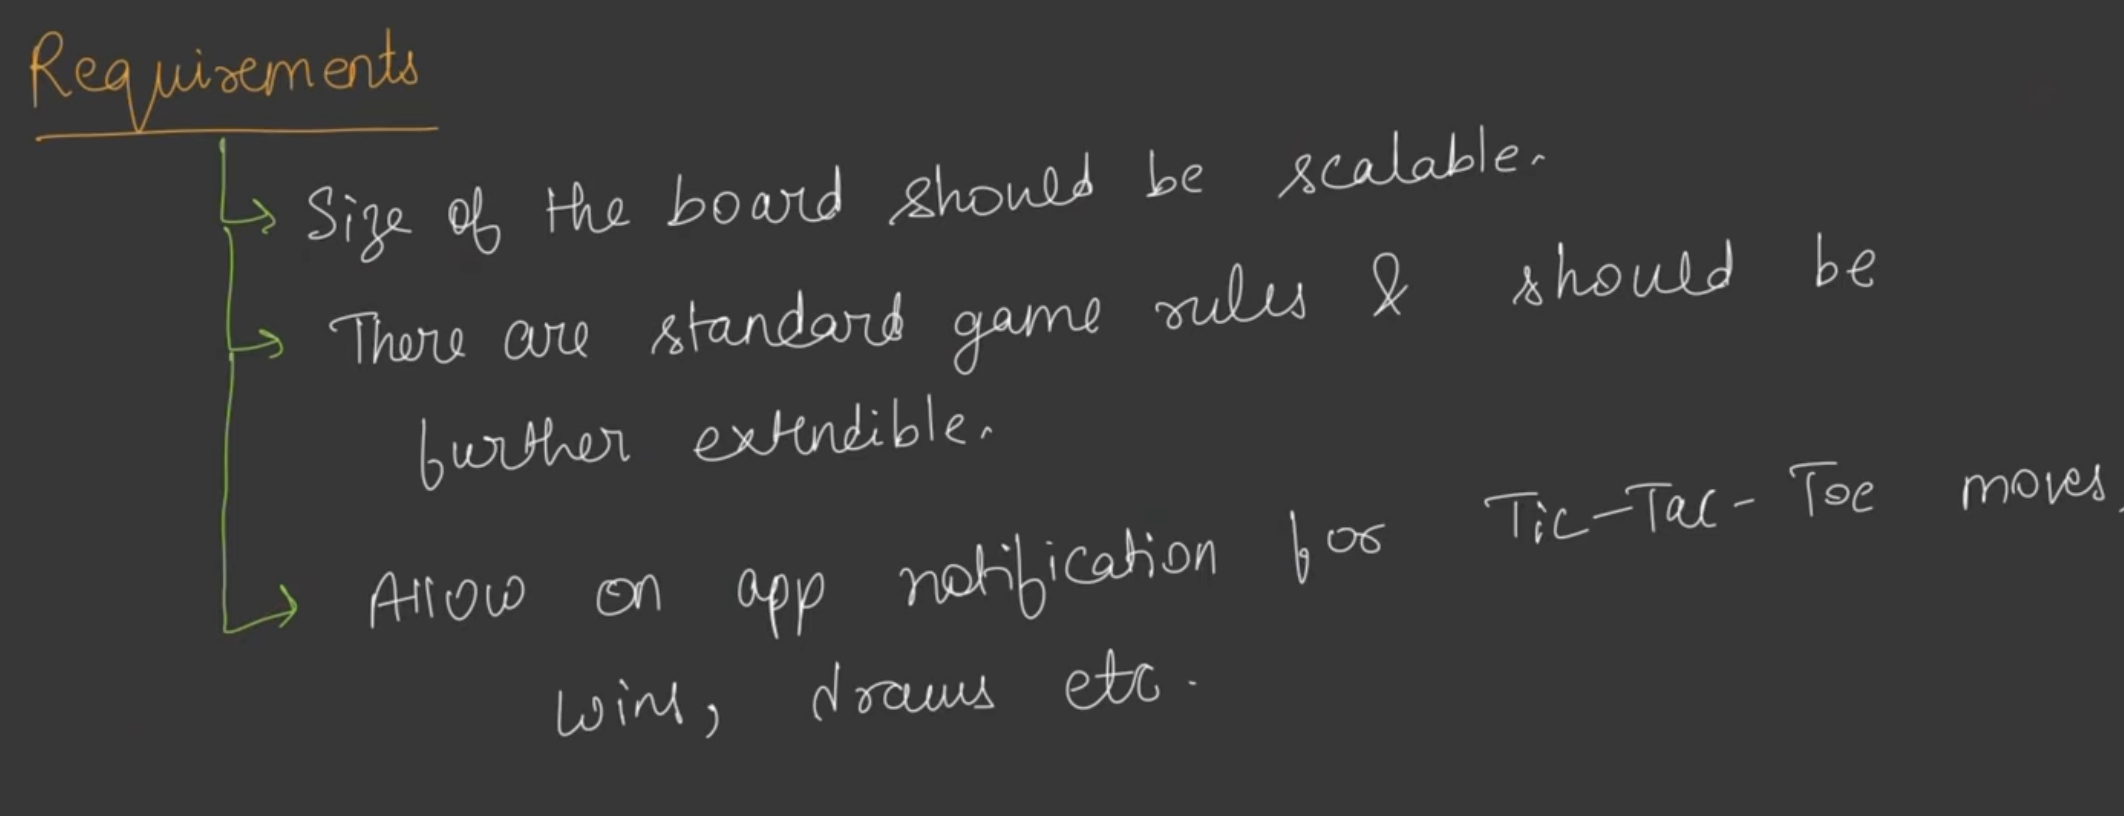 Requirements
Size of the board should be scalable.
There are standard game rules & should be
further extendible.
Allow on app notification for Tic-Tac-Toe moves,
wins, draws etc.